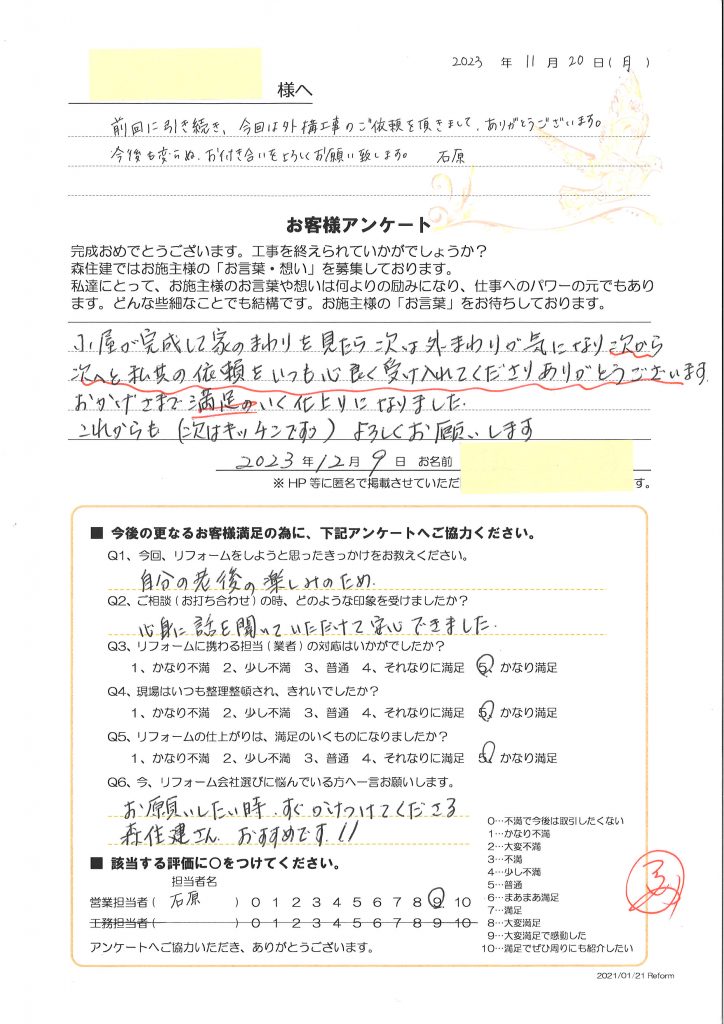 2023 年 11 月 20 日(月)
様へ
前回に引き続き、今回は外構工事のご依頼を頂きまして、ありがとうございます。
今後も変らぬ、お付き合いをよろしくお願い致します。 石原
お客様アンケート
完成おめでとうございます。工事を終えられていかがでしょうか?
森住建ではお施主様の「お言葉・想い」を募集しております。
私達にとって、お施主様のお言葉や想いは何よりの励みになり、仕事へのパワーの元でもあり
ます。どんな些細なことでも結構です。お施主様の「お言葉」をお待ちしております。
小屋が完成して家のまわりを見たら次は外まわりが気になり次から
次へと私共の依頼をいつも心良く受け入れてくださりありがとうございます
おかげさまで満足のいく仕上りになりました.
これからも (次はキッチンですかね) よろしくお願いします
2023年12月9日 お名前
※HP等に匿名で掲載させていただ す。
■ 今後の更なるお客様満足の為に、下記アンケートへご協力ください。
Q1、今回、リフォームをしようと思ったきっかけをお教えください。
自分の老後の楽しみのため.
Q2、ご相談(お打ち合わせ)の時、どのような印象を受けましたか?
心身に話を聞いていただけて安心できました.
Q3、リフォームに携わる担当(業者)の対応はいかがでしたか?
1、かなり不満 2、少し不満 3、普通 4、それなりに満足 5、かなり満足
Q4、現場はいつも整理整頓され、きれいでしたか?
1、かなり不満 2、少し不満 3、普通 4、それなりに満足 5、かなり満足
Q5、リフォームの仕上がりは、満足のいくものになりましたか?
1、かなり不満 2、少し不満 3、普通 4、それなりに満足 5、かなり満足
Q6、今、リフォーム会社選びに悩んでいる方へ一言お願いします。
お願いしたい時、すぐかけつけてくださる
森住建さん、おすすめです!!
■ 該当する評価に○をつけてください。
担当者名
営業担当者( 石原 ) 0 1 2 3 4 5 6 7 8 9 10
工務担当者( ) 0 1 2 3 4 5 6 7 8 9 10
アンケートへご協力いただき、ありがとうございます。
0…不満で今後は取引したくない
1…かなり不満
2…大変不満
3…不満
4…少し不満
5…普通
6…まあまあ満足
7…満足
8…大変満足
9…大変満足で感動した
10…満足でぜひ周りにも紹介したい
2021/01/21 Reform